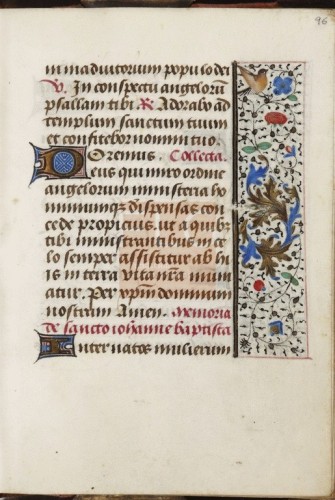 96
in in adiutorium populo dei
V. In conspectu angelorum
psallam tibi R Adorabo ad
templum sanctum tuum
et confitebor nomini tuo.
Oremus. Collecta.
Deus qui miro ordine
angelorum ministeria ho
minumqz dispensas con
cede propicius. ut a quibz
tibi ministrantibus in ce
lo semper assistitur ab hi
is in terra vita nr̄a muni
atur. Per xp̄m dominum
nostrum Amen. Memoria
de sancto iohanne baptista
Inter natos mulierum